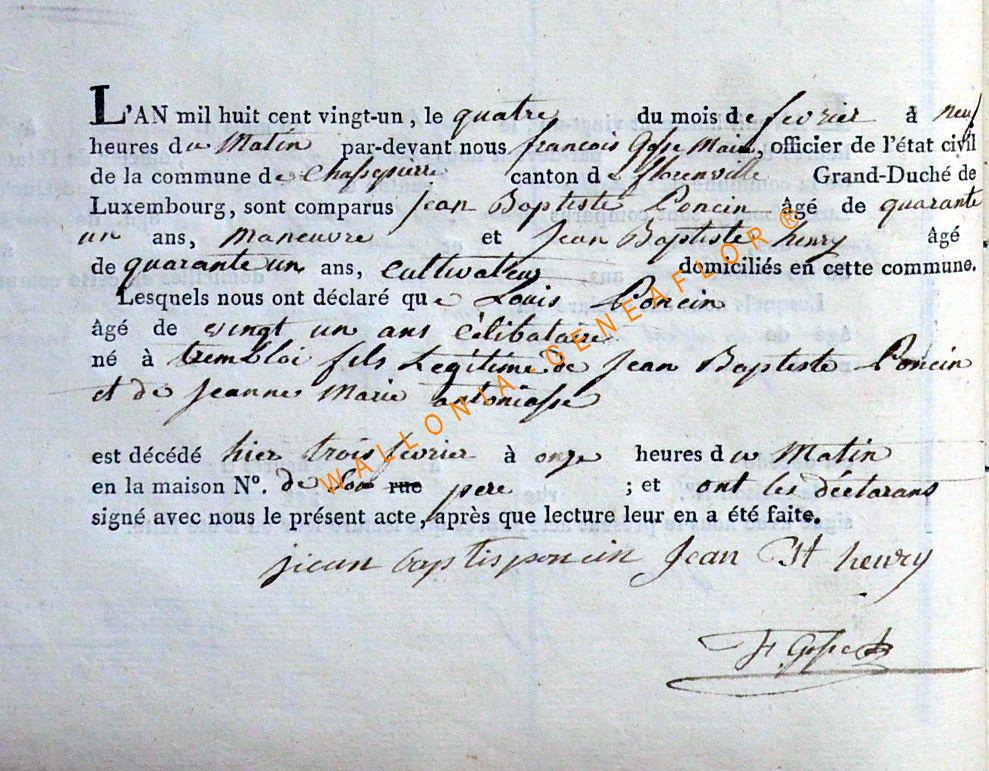 L'AN mil huit cent vingt-un, le quatre du mois de fevrier à neuf
heures du Matin par-devant nous francois Gosse Maire, officier de l'état civil
de la commune de Chassepierre canton de florenville Grand-Duché de
Luxembourg, sont comparus Jean Baptiste Poncin âgé de quarante
un ans, maneuvre et Jean Baptiste henry âgé
de quarante un ans, Cultivateur domiciliés en cette commune.
Lesquels nous ont déclaré que Louis Poncin
âgé de vingt un ans Célibataire
né à trembloi fils Legitime de Jean Baptiste Poncin
et de Jeanne Marie antoniasse
est décédé hier trois fevrier à onze heures du Matin
en la maison N°. de Son rue pere ; et ont les déclarans
signé avec nous le présent acte, après que lecture leur en a été faite.
jiean baptis poncin Jean Bt henry
F Gosse
WALLONIA-GENEAFLOR®